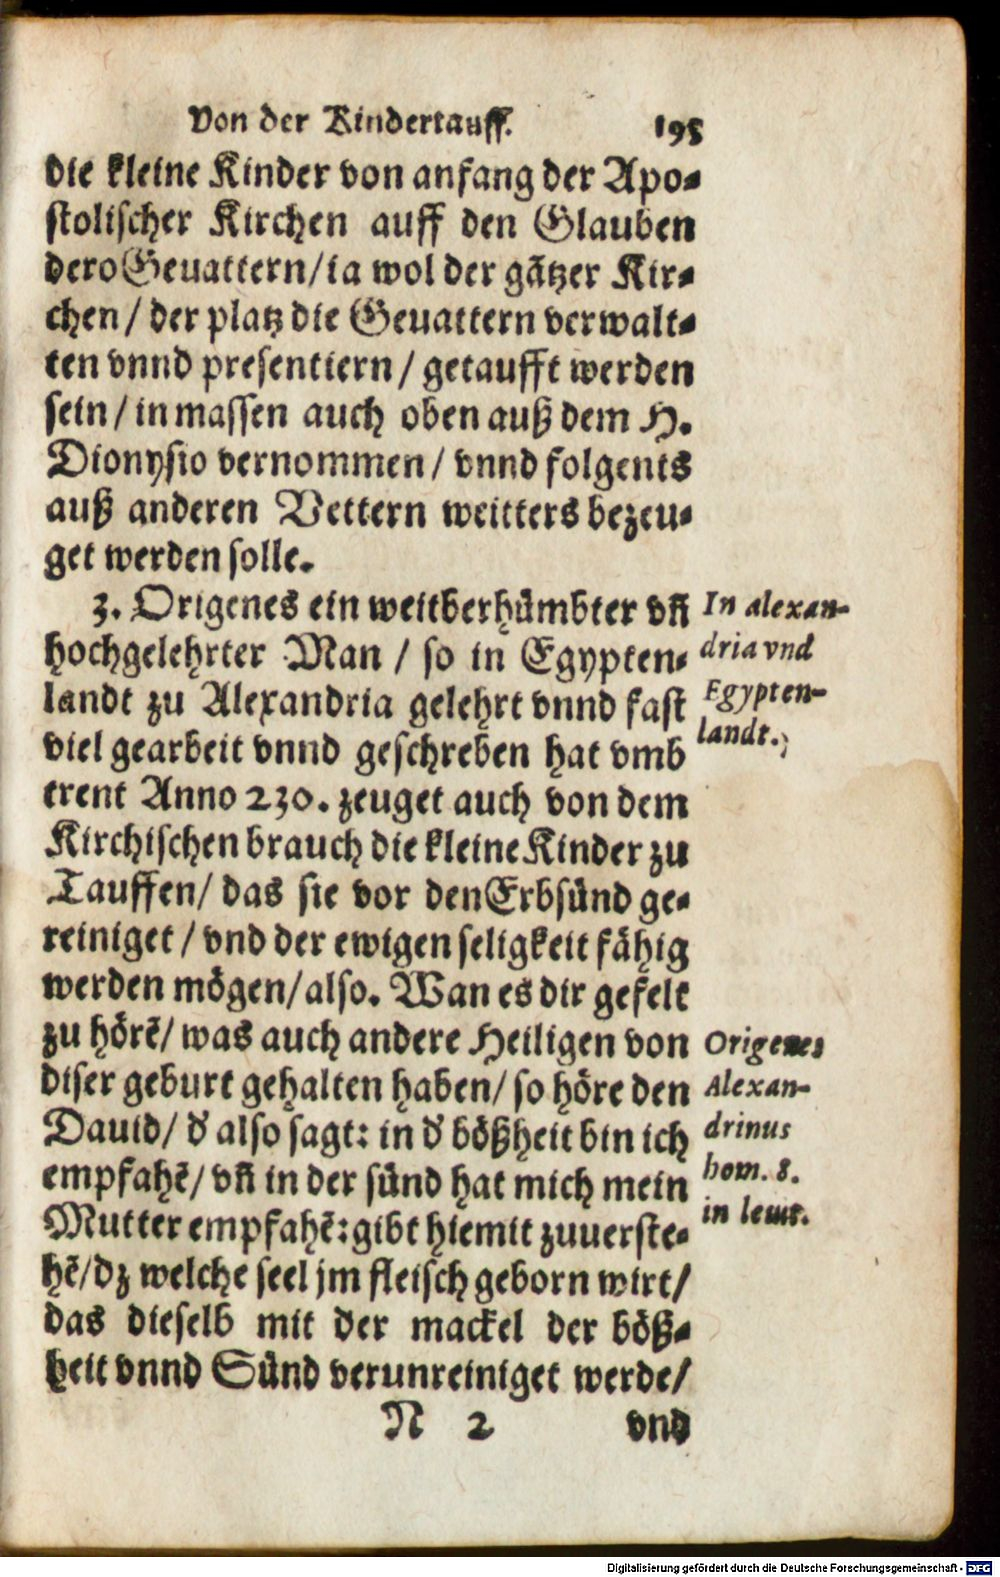 Von der Kindertauff. 195
die kleine Kinder von anfang der Apo-
stolischer Kirchen auff den Glauben
dero Gevattern/ ia wol der gãtzer Kir-
chen/ der platz die Gevattern verwalt-
ten vnnd presentiern/ getaufft werden
sein/ in massen auch oben auß dem H.
Dionysio vernommen/ vnnd folgents
auß anderen Vettern weitters bezeu-
get werden solle.
3. Origenes ein weitberhümbter vñ
hochgelehrter Man/ so in Egypten-
landt zu Alexandria gelehrt vnnd fast
viel gearbeit vnnd geschreben hat vmb
trent Anno 230. zeuget auch von dem
Kirchischen brauch die kleine Kinder zu
Tauffen/ das sie vor den Erbsünd ge-
reiniget/ vnd der ewigen seligkeit fähig
werden mögen/ also. Wan es dir gefelt
zu hörẽ/ was auch andere Heiligen von
diser geburt gehalten haben/ so höre den
Dauid/ d' also sagt: in d' bößheit bin ich
empfahẽ/ vñ in der sünd hat mich mein
Mutter empfahẽ: gibt hiemit zuuerste-
hẽ/ dz welche seel jm fleisch geborn wirt/
das dieselb mit der mackel der böß-
heit vnnd Sünd verunreiniget werde/
N 2 vnd
In alexan-
dria vnd
Egypten-
landt.
Origenes
Alexan-
drinus
hom. 8.
in leuit.
Digitalisierung gefördert durch die Deutsche Forschungsgemeinschaft - DFG